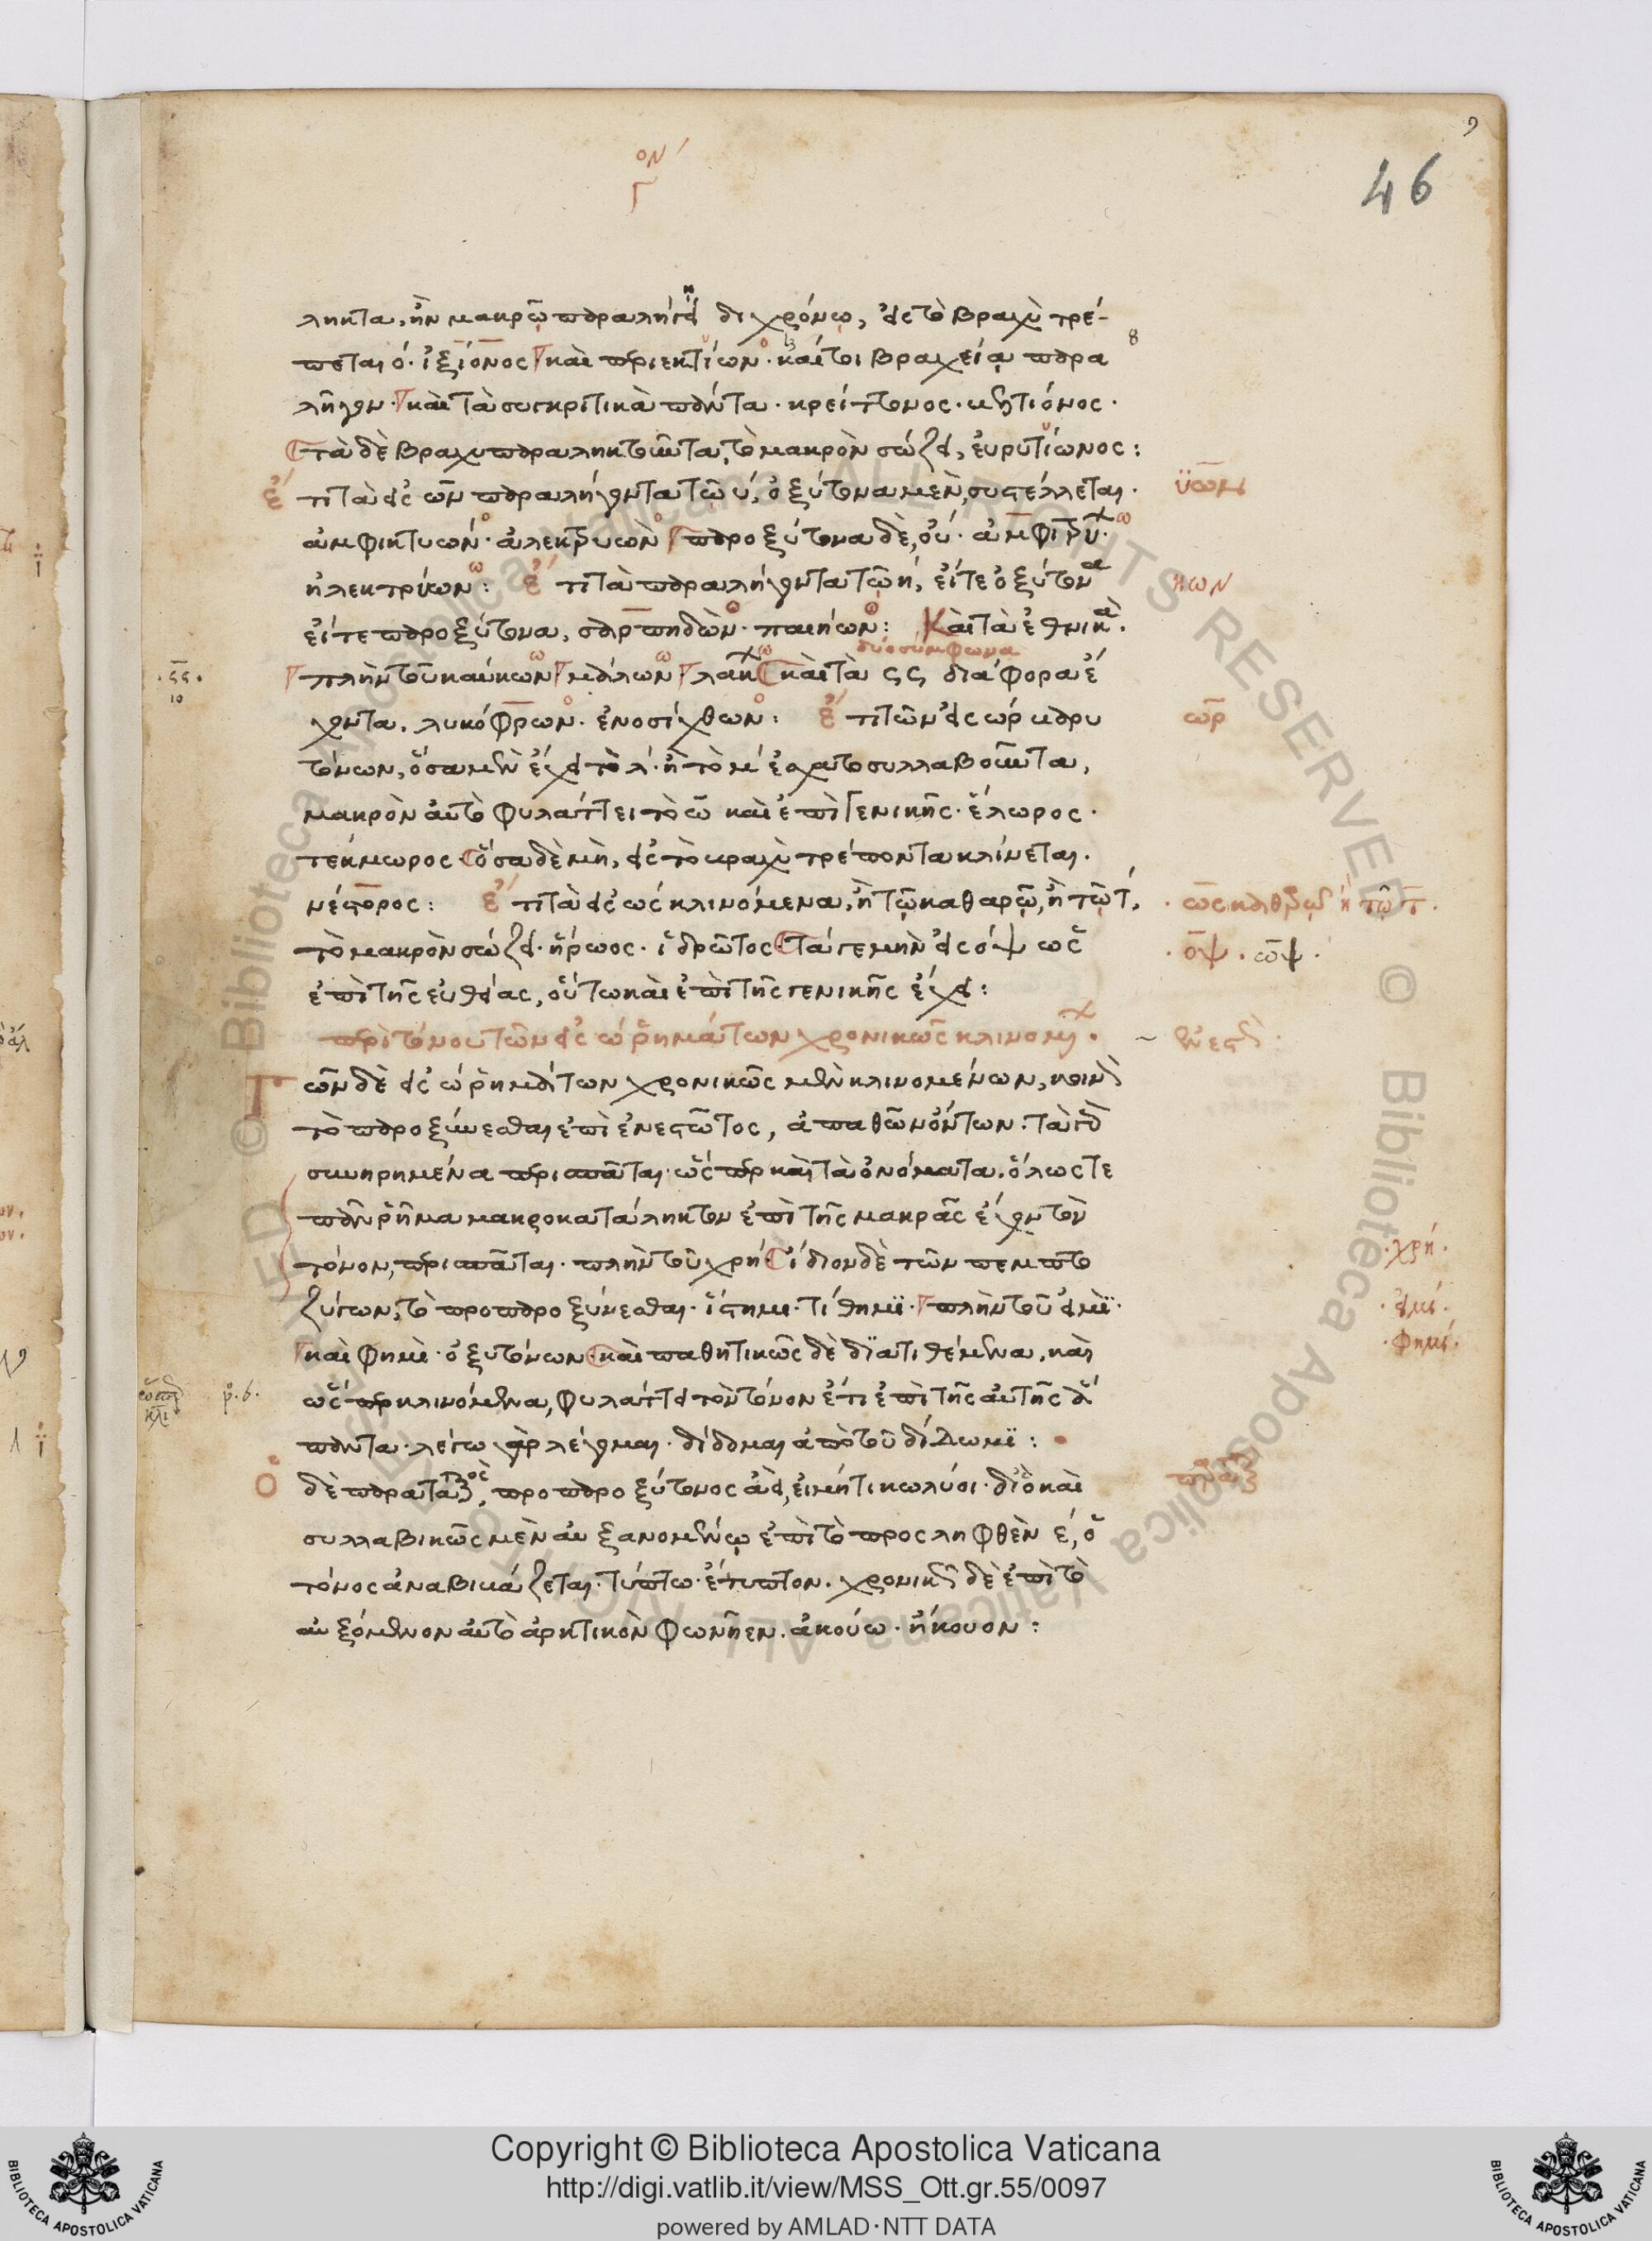 ον
Γ
9
46
ληκτα, ἢν μακρῷ παραλήγει ἢ διχρόνῳ, εἰς τὸ βραχὺ τρέ-
8
πεται ὁ. ἰξίονος καὶ περιεκτίων. καίτοι βραχείᾳ παρα
λῆγον. καὶ τὰ συγκριτικὰ πάντα. κρείττονος.
τὰ δὲ βραχυπαραληκτοῦντα, τὸ μακρὸν σώζει, εὐρυτίωνος:
ἔτι τὰ εἰς ων παραλήγοντα τῷ υ, ὀξύτονα μὲν, συστέλλεται.
ἀμφικτυών. ἀλεκτρυών παροξύτονα δὲ, οὔ. ἀμφιτρύ.
ἠλεκτρύων: ἔτι τὰ παραλήγοντα τῷ η, εἴτε ὀξύτονα
ηων
εἴτε παροξύτονα, σαρπηδὼν. παιήων: Καὶ τὰ ἐθνικὰ.
δύο σύμφωνα
πλὴν τοῦ καύκων μάλων λάκ καὶ τὰ ςς διάφορα ἔ
χοντα. λυκόφρων. ἐνοσίχθων: ἔτι τῶν εἰς ωρ βαρυ
ωρ
10
τόνων, ὅσα μὲν ἔχει τὸ λ. ἢ τὸ μ ἐσχατοσυλλαβοῦντα,
μακρὸν αὐτὸ φυλάττει τὸ ω καὶ ἐπὶ γενικῆς. ἕλωρος.
τέκμωρος ὅσα δὲ μὴ, εἰς τὸ βραχὺ τρέποντα κλίνεται.
νέστορος: ἔτι τὰ εἰς ως κλινόμενα, ἢ τῷ καθαρῷ, ἢ τῷ τ,
τὸ μακρὸν σώζει. ἥρωος. ἱδρῶτος Τά γε μὴν εἰς οψ ως
οψ. ωψ.
ἐπὶ τῆς εὐθείας, οὕτω καὶ ἐπὶ τῆς γενικῆς ἔχει:
περὶ τόνου τῶν εἰς ω ῥημάτων χρονικῶς κλινομ.
Τῶν δὲ εἰς ω ῥημάτων χρονικῶς μὲν κλινομένων, κοινὸν
τὸ παροξύνεσθαι ἐπὶ ἐνεστῶτος, ἀπαθῶν ὄντων. Τὰ γὰρ
συνηρημένα περισπᾶται. ὥσπερ καὶ τὰ ὀνόματα. ὅλως τε
πᾶν ῥῆμα μακροκατάληκτον ἐπὶ τῆς μακρᾶς ἔχον τὸν
τόνον, περισπᾶται. πλὴν τοῦ χρή ἴδιον δὲ τῶν πέμπτο
χρή.
ζύγων, τὸ προπαροξύνεσθαι. ἵστημι. τίθημι. πλὴν τοῦ εἰμὶ.
εἰμί.
καὶ φημὶ. ὀξυτόνων καὶ παθητικῶς δὲ διατιθέμενα, καὶ
φημί.
ὥσπερ κλινόμενα, φυλάττει τὸν τόνον ἔτι ἐπὶ τῆς αὐτῆς
πάντα. λέγω γὰρ λέγομαι. δίδομαι ἀπὸ τοῦ δίδωμι:
Ὁ δὲ παρατατικὸς, προπαροξύτονος ἀεὶ, εἰ μή τι κωλύοι. διὸ καὶ
συλλαβικῶς μὲν αὐξανομένῳ ἐπὶ τὸ προσληφθὲν ε, ὁ
τόνος ἀναβιβάζεται. τύπτω. ἔτυπτον. χρονικῶς δὲ ἐπὶ τὸ
αὐξόμενον αὐτὸ ἀρκτικὸν φωνῆεν. ἀκούω. ἤκουον:
© Biblioteca Apostolica Vaticana ALL RIGHTS RESERVED © Biblioteca Apostolica Vaticana ALL RIGHTS RESERVED
Copyright © Biblioteca Apostolica Vaticana
http://digi.vatlib.it/view/MSS_Ott.gr.55/0097
powered by AMLAD·NTT DATA
BIBLIOTECA APOSTOLICA VATICANA
BIBLIOTECA APOSTOLICA VATICANA